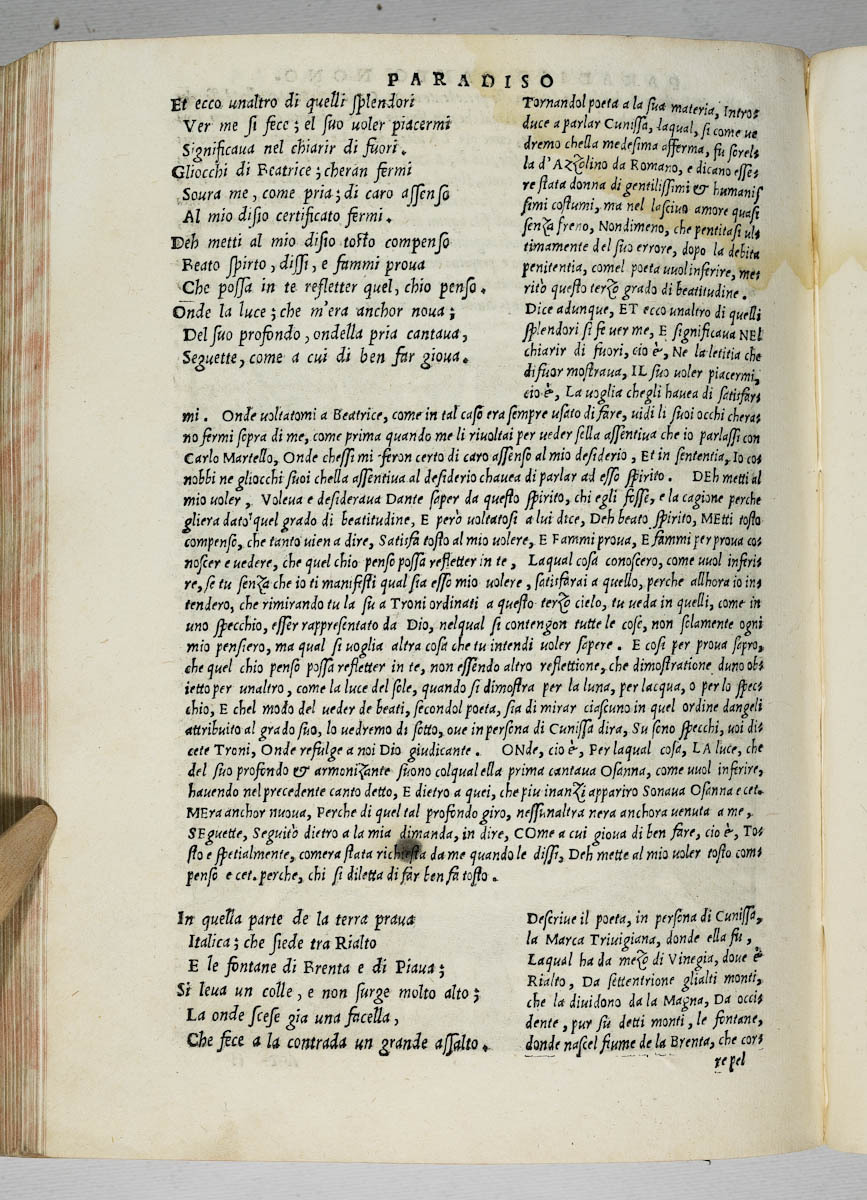 PARADISO
Et ecco unaltro di quelli ſplendori
Ver me ſi fece; el ſuo uoler piacermi
Significaua nel chiarir di fuori.
Gliocchi di Beatrice; cheran fermi
Soura me, come pria; di caro aſſenſo
Al mio diſio certificato fermi.
Deh metti al mio diſio toſto compenſo
Beato ſpirto, diſſi, e fammi proua
Che poſſa in te refletter quel, chio penſo.
Onde la luce; che m'era anchor noua;
Del ſuo profondo, ondella pria cantaua,
Seguette, come a cui di ben far gioua.
Tornandol poeta a la ſua materia, Intro⸗
duce a parlar Cuniſſa, laqual, ſi come ue
dremo chella medeſima afferma, fu ſorel⸗
la d'Azzolino da Romano, e dicano eſſe⸗
re ſtata donna di gentiliſſimi & humaniſ
ſimi coſtumi, ma nel laſciuo amore quaſi
ſenza freno, Nondimeno, che pentitaſi ul⸗
timamente del ſuo errore, dopo la debita
penitentia, comel poeta uuol inferire, me⸗
ritò queſto terzo grado di beatitudine.
Dice adunque, ET ecco unaltro di quelli
ſplendori ſi fe uer me, E ſignificaua NEl
chiarir di fuori, cio è, Ne la letitia che
difuor moſtraua, IL ſuo uoler piacermi,
cio è, La uoglia chegli hauea di ſatisfar⸗
mi. Onde uoltatomi a Beatrice, come in tal caſo era ſempre uſato di fare, uidi li ſuoi occhi chera⸗
no fermi ſopra di me, come prima quando me li riuoltai per ueder ſella aſſentiua che io parlaſſi con
Carlo Martello, Onde cheſſi mi feron certo di caro aſſenſo al mio deſiderio, Et in ſententia, Io co⸗
nobbi ne gliocchi ſuoi chella aſſentiua al deſiderio chauea di parlar ad eſſo ſpirito. DEh metti al
mio uoler, Voleua e deſideraua Dante ſaper da queſto ſpirito, chi egli foſſe, e la cagione perche
gliera dato quel grado di beatitudine, E però uoltatoſi a lui dice, Deh beato ſpirito, MEtti toſto
compenſo, che tanto uien a dire, Satisfa toſto al mio uolere, E Fammi proua, E fammi per proua co⸗
noſcer e uedere, che quel chio penſo poſſa refletter in te, Laqual coſa conoſcero, come uuol inferi⸗
re, ſe tu ſenza che io ti manifeſti qual ſia eſſo mio uolere, ſatisfarai a quello, perche allhora io in⸗
tendero, che rimirando tu la ſu a Troni ordinati a queſto terzo cielo, tu ueda in quelli, come in
uno ſpecchio, eſſer rappreſentato da Dio, nelqual ſi contengon tutte le coſe, non ſolamente ogni
mio penſiero, ma qual ſi uoglia altra coſa che tu intendi uoler ſapere. E coſi per proua ſapro,
che quel chio penſo poſſa refletter in te, non eſſendo altro reflettione, che dimoſtratione duno ob⸗
ietto per unaltro, come la luce del ſole, quando ſi dimoſtra per la luna, per lacqua, o per lo ſpec⸗
chio, E chel modo del ueder de beati, ſecondol poeta, ſia di mirar ciaſcuno in quel ordine dangeli
attribuito al grado ſuo, lo uedremo di ſotto, oue in perſona di Cuniſſa dira, Su ſono ſpecchi, uoi di⸗
cete Troni, Onde refulge a noi Dio giudicante. ONde, cio è, Per laqual coſa, LA luce, che
del ſuo profondo & armonizante ſuono colqual ella prima cantaua Oſanna, come uuol inferire,
hauendo nel precedente canto detto, E dietro a quei, che piu inanzi appariro Sonaua Oſanna e cet.
MEra anchor nuoua, Perche di quel tal profondo giro, neſſunaltra nera anchora uenuta a me,
SEguette, Seguitò dietro a la mia dimanda, in dire, COme a cui gioua di ben fare, cio è, To⸗
ſto e ſpetialmente, comera ſtata richieſta da me quando le diſſi, Deh mette al mio uoler toſto com⸗
penſo e cet. perche, chi ſi diletta di far ben fa toſto.
In quella parte de la terra praua
Italica; che ſiede tra Rialto
E le fontane di Brenta e di Piaua;
Si leua un colle, e non ſurge molto alto;
La onde ſceſe gia una facella,
Che fece a la contrada un grande aſſalto.
Deſcriue il poeta, in perſona di Cuniſſa,
la Marca Triuigiana, donde ella fu,
Laqual ha da mezo di Vinegia, doue è
Rialto, Da ſettentrione glialti monti,
che la diuidono da la Magna, Da occi⸗
dente, pur ſu detti monti, le fontane,
donde naſcel fiume de la Brenta, che cor⸗
re pel